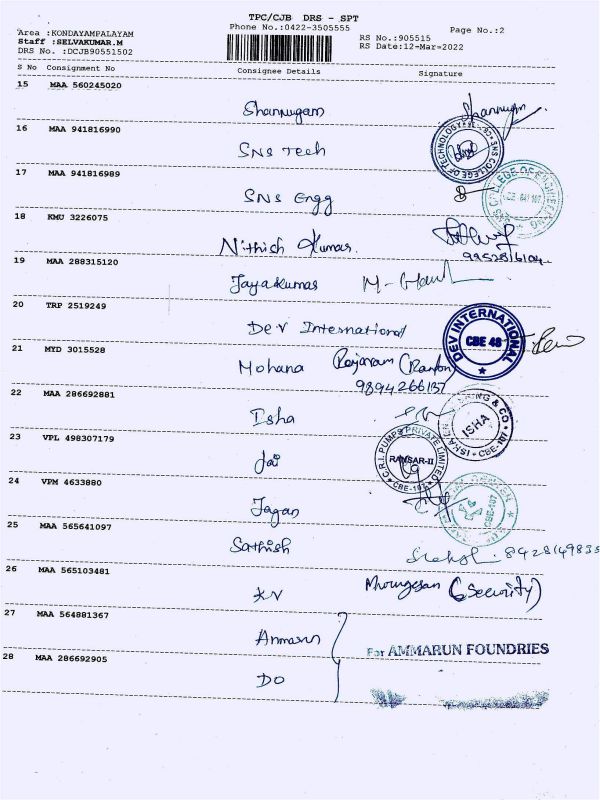 TPC/CJB DRS - SPT
Phone No.:0422-3505555
Page No.:2
Area :KONDAYAMPALAYAM
Staff :SELVAKUMAR.M
DRS No. :DCJB90551502
RS No.:905515
RS Date:12-Mar-2022
S No Consignment No Consignee Details Signature
15 MAA 560245020
Shanmugam
16 MAA 941816990
SNS Tech
SNS COLLEGE OF TECHNOLOGY
17 MAA 941816989
SNS Engg
SNS COLLEGE OF ENGINEERING
18 KMU 3226075
Nithish Kumar.
19 MAA 288315120
Jayakumar
20 TRP 2519249
Dev International
DEV INTERNATIONAL
CBE 48
21 MYD 3015528
Mohana
9894266137
22 MAA 286692881
Isha
ISHA
23 VPL 498307179
Jai
C.R.I. PUMPS PRIVATE LIMITED
RAMSAR-II
24 VPM 4633880
Jagan
25 MAA 565641097
Sathish
8428149835
26 MAA 565103481
KV
Murugesan (Security)
27 MAA 564881367
Ammarun
For AMMARUN FOUNDRIES
28 MAA 286692905
DO